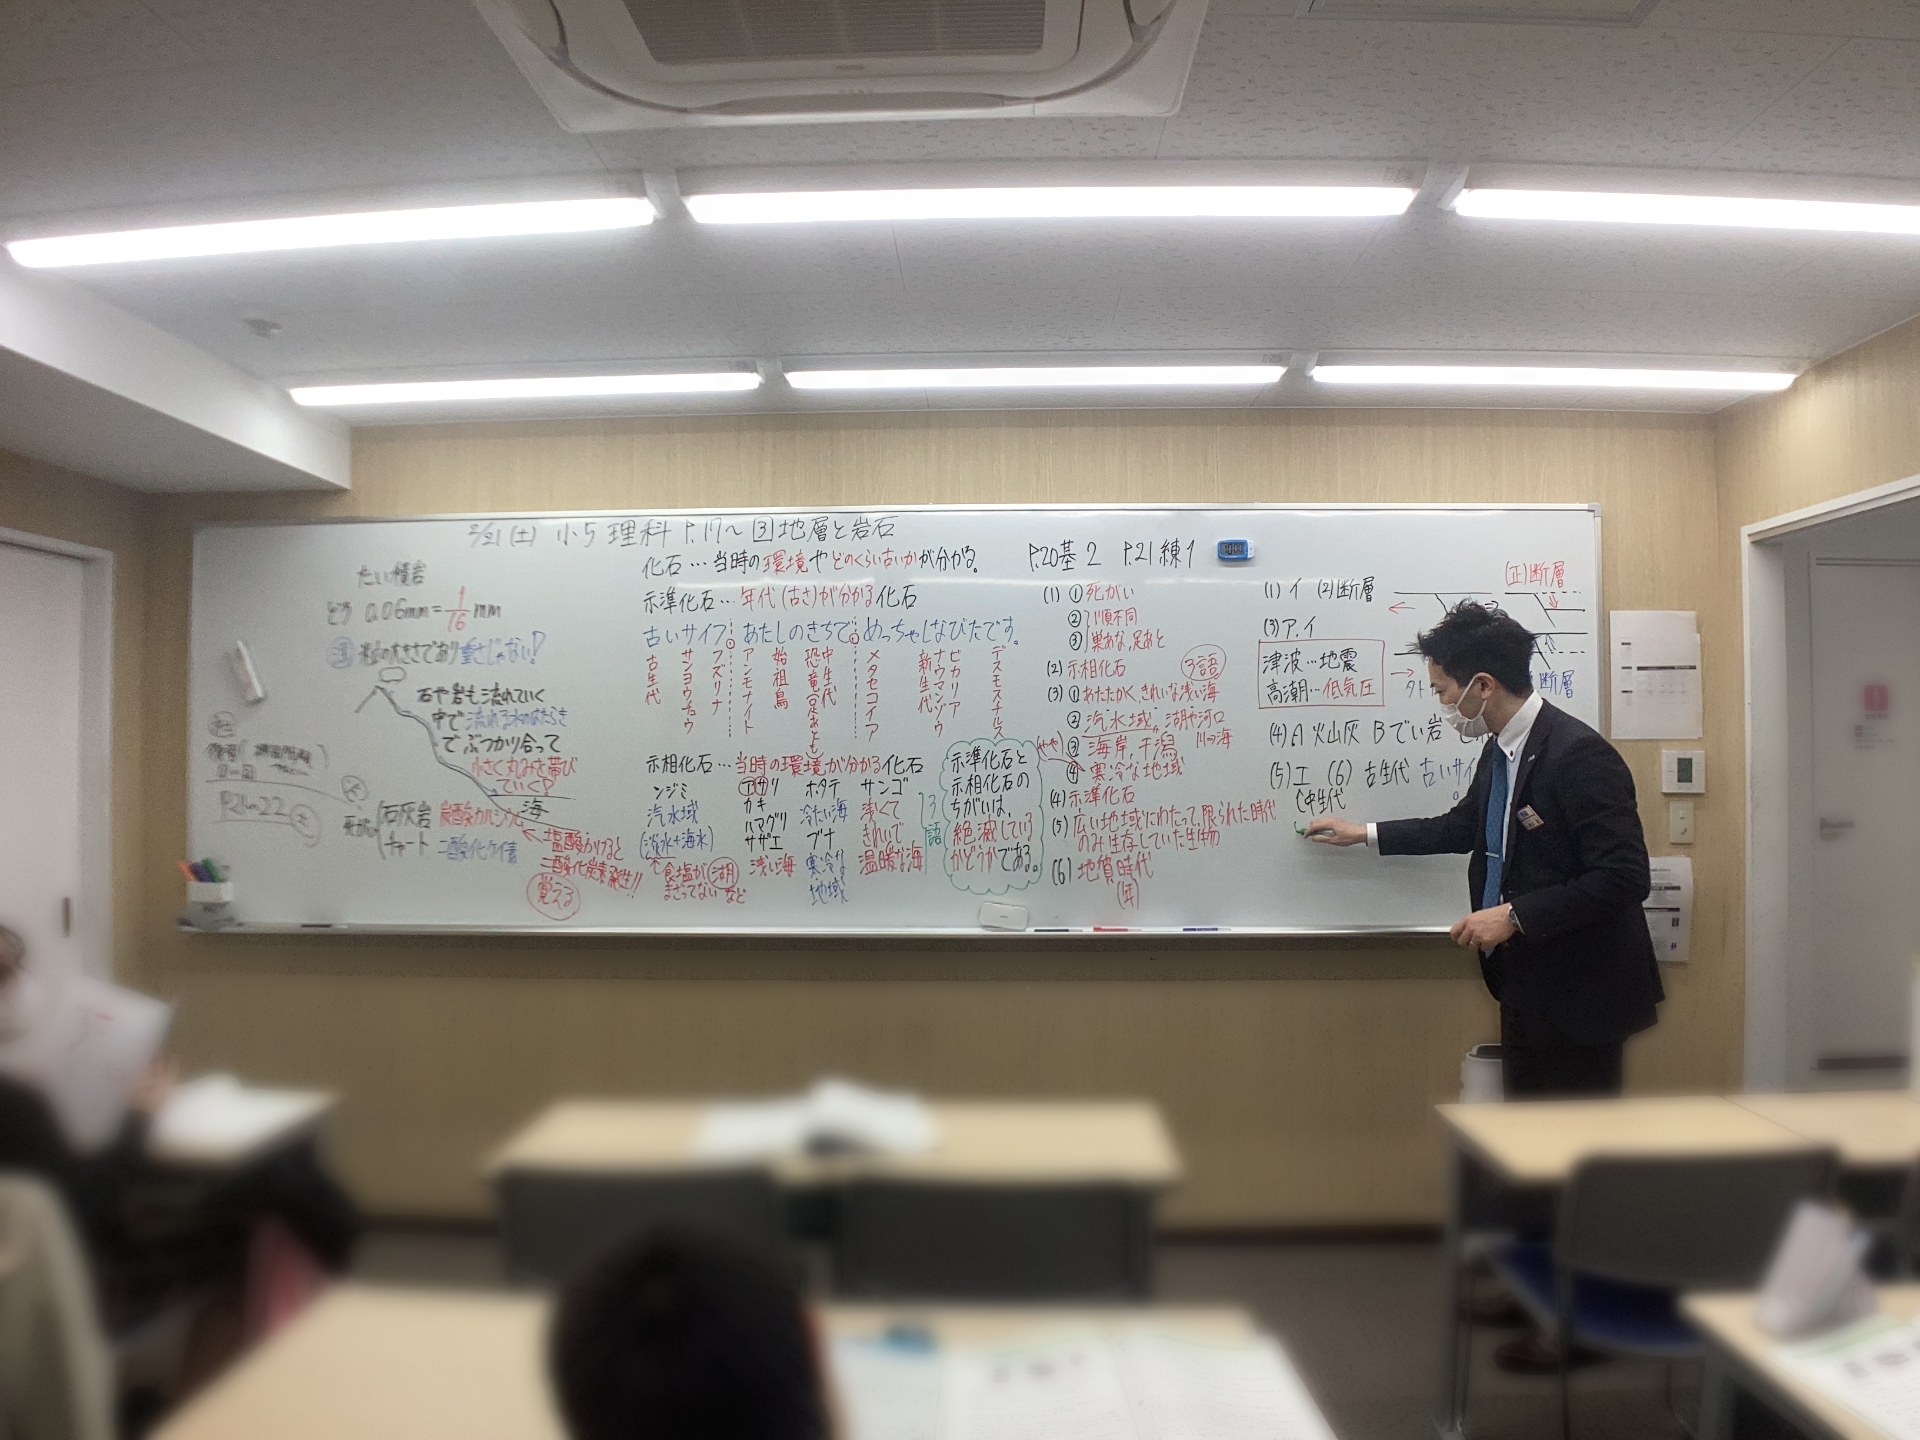 2/21(土) 小5 理科 P.17〜 ③地層と岩石
たい積岩
どろ 0.06mm=1/16mm
粒の大きさであり重さじゃない!
石や岩も流れていく
中で流れる水のはたらき
でぶつかり合って
小さく丸みを帯び
ていく!
海
石灰岩 炭酸カルシウム
チャート 二酸化ケイ素
塩酸かけると
二酸化炭素発生!!
覚える
P.21〜22
化石…当時の環境やどのくらい古いかが分かる。
示準化石…年代(古さ)が分かる化石
古いサイフ。あたしのきちで。めっちゃしなびたです。
古生代
サンヨウチュウ
フズリナ
アンモナイト
始祖鳥
恐竜(足あとも)
中生代
メタセコイア
新生代
ナウマンゾウ
ビカリア
デスモスチルス
示相化石…当時の環境が分かる化石
シジミ
汽水域
(淡水+海水)
食塩が
まざってない
湖
など
アサリ
カキ
ハマグリ
サザエ
浅い海
ホタテ
冷たい海
ブナ
寒冷な
地域
サンゴ
浅くて
きれいで
温暖な海
3語
示準化石と
示相化石の
ちがいは、
絶滅している
かどうかである。
P.20基2 P.21練1
(1)①死がい
②順不同
③巣あな,足あと
(2)示相化石 3語
(3)①あたたかく,きれいな浅い海
②汽水域,湖や河口
川⇒海
③海岸,干潟
(やや)
④寒冷な地域
(4)示準化石
(5)広い地域にわたって,限られた時代
のみ生存していた生物
(6)地質時代
(年)
(1)イ (2)断層
(3)ア,イ
津波…地震
高潮…低気圧
(正)断層
断層
(4)A 火山灰 B でい岩
(5)エ (6)古生代 古いサイ
中生代